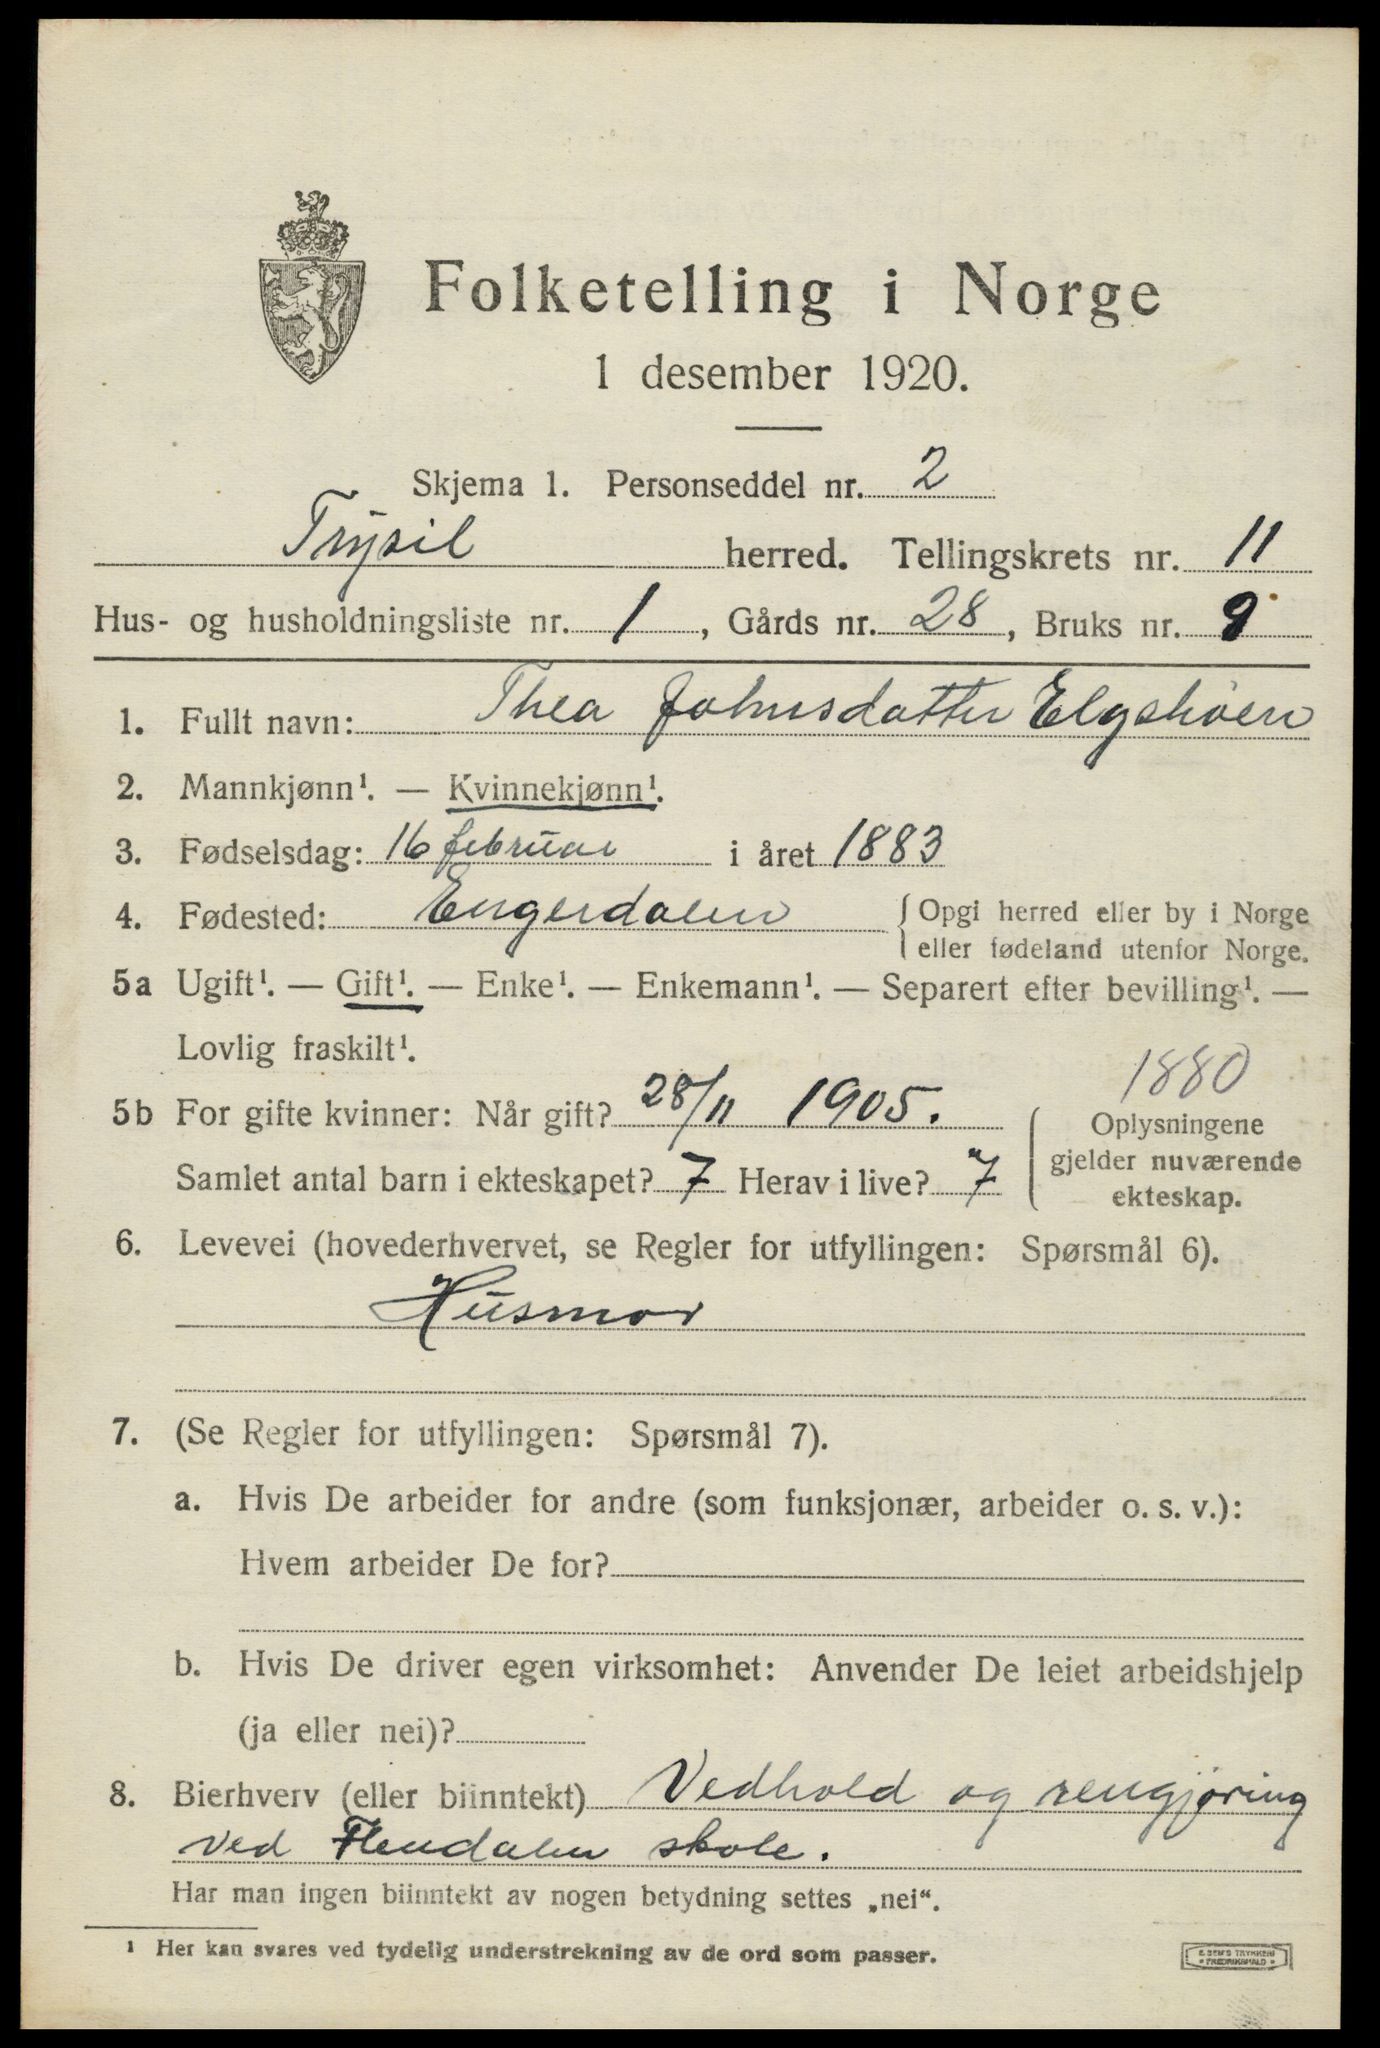 Folketelling i Norge
1 desember 1920.
Skjema 1. Personseddel nr. 2
Trysil herred. Tellingskrets nr. 11
Hus- og husholdningsliste nr. 1, Gårds nr. 28, Bruks nr. 9
1. Fullt navn: Thea Johnsdatter Elgshøen
2. Mannkjønn¹. — Kvinnekjønn¹.
3. Fødselsdag: 16 februar i året 1883
4. Fødested: Engerdalen { Opgi herred eller by i Norge
eller fødeland utenfor Norge.
5a Ugift¹. — Gift¹. — Enke¹. — Enkemann¹. — Separert efter bevilling¹. —
Lovlig fraskilt¹.
1880
5b For gifte kvinner: Når gift? 28/11 1905. Oplysningene
gjelder nuværende
Samlet antal barn i ekteskapet? 7 Herav i live? 7 ekteskap.
6. Levevei (hovederhvervet, se Regler for utfyllingen: Spørsmål 6).
Husmor
7. (Se Regler for utfyllingen: Spørsmål 7).
a. Hvis De arbeider for andre (som funksjonær, arbeider o. s. v.):
Hvem arbeider De for?
b. Hvis De driver egen virksomhet: Anvender De leiet arbeidshjelp
(ja eller nei)?
8. Bierhverv (eller biinntekt) Vedhold og rengjøring
ved Flendalen skole.
Har man ingen biinntekt av nogen betydning settes „nei“.
¹ Her kan svares ved tydelig understrekning av de ord som passer.
E. SEM'S TRYKKERI
FREDRIKSHALD